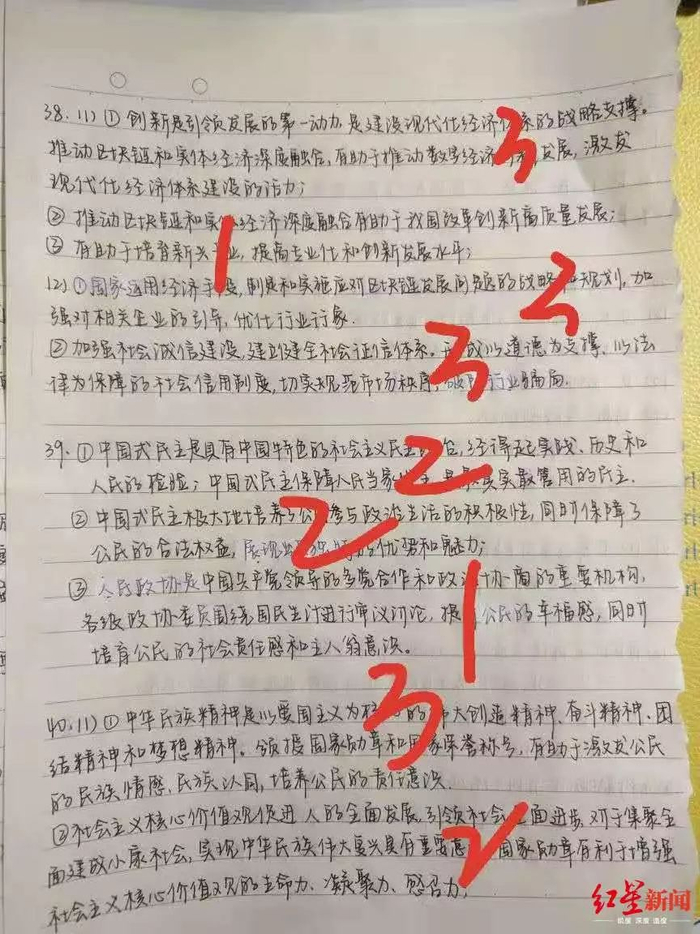 38.(1)①创新是引领发展的第一动力,是建设现代化经济体系的战略支撑。 3
推动区块链和实体经济深度融合,有助于推动数字经济 发展,激发
现代化经济体系建设的活力;
②推动区块链和实体经济深度融合有助于我国改革创新高质量发展;
③有助于培育新兴 业,提高专业化和创新发展水平; 1
(2)①国家运用经济手段,制定和实施应对区块链发展问题的战略 规划,加 2
强对相关企业的引导,优化行业
②加强社会诚信建设,建立健全社会征信体系。形成以道德为支撑、以法 3
律为保障的社会信用制度,切实规范市场秩序, 行业骗局.
39.①中国式民主是具有中国特色的社会主义民主 ,经得起实践、历史和 2
人民的检验;中国式民主保障人民当家 ,是最真实最管用的民主.
②中国式民主极大地培养了公 参与政治生活的积极性,同时保障了 2
公民的合法权益,展现出 的优势和魅力;
③人民政协是中国共产党领导的多党合作和政治协商的重要机构, 1
各级政协委员围绕国民生计进行审议讨论,提 公民的幸福感,同时
培育公民的社会责任感和主人翁意识。
40.(1)①中华民族精神是以爱国主义为核 的 大创造精神、奋斗精神、团 3
结精神和梦想精神。颁授国家勋章和国家荣誉称号,有助于激发公民
的民族情感,民族认同,培养公民的责任意识.
②社会主义核心价值观促进人的全面发展,引领社会 面进步,对于集聚全
面建成小康社会,实现中华民族伟大复兴具有重要意 国家勋章有利于增强 2
社会主义核心价值观的生命力、凝聚力、感召力;
红星新闻
锐度 深度 速度